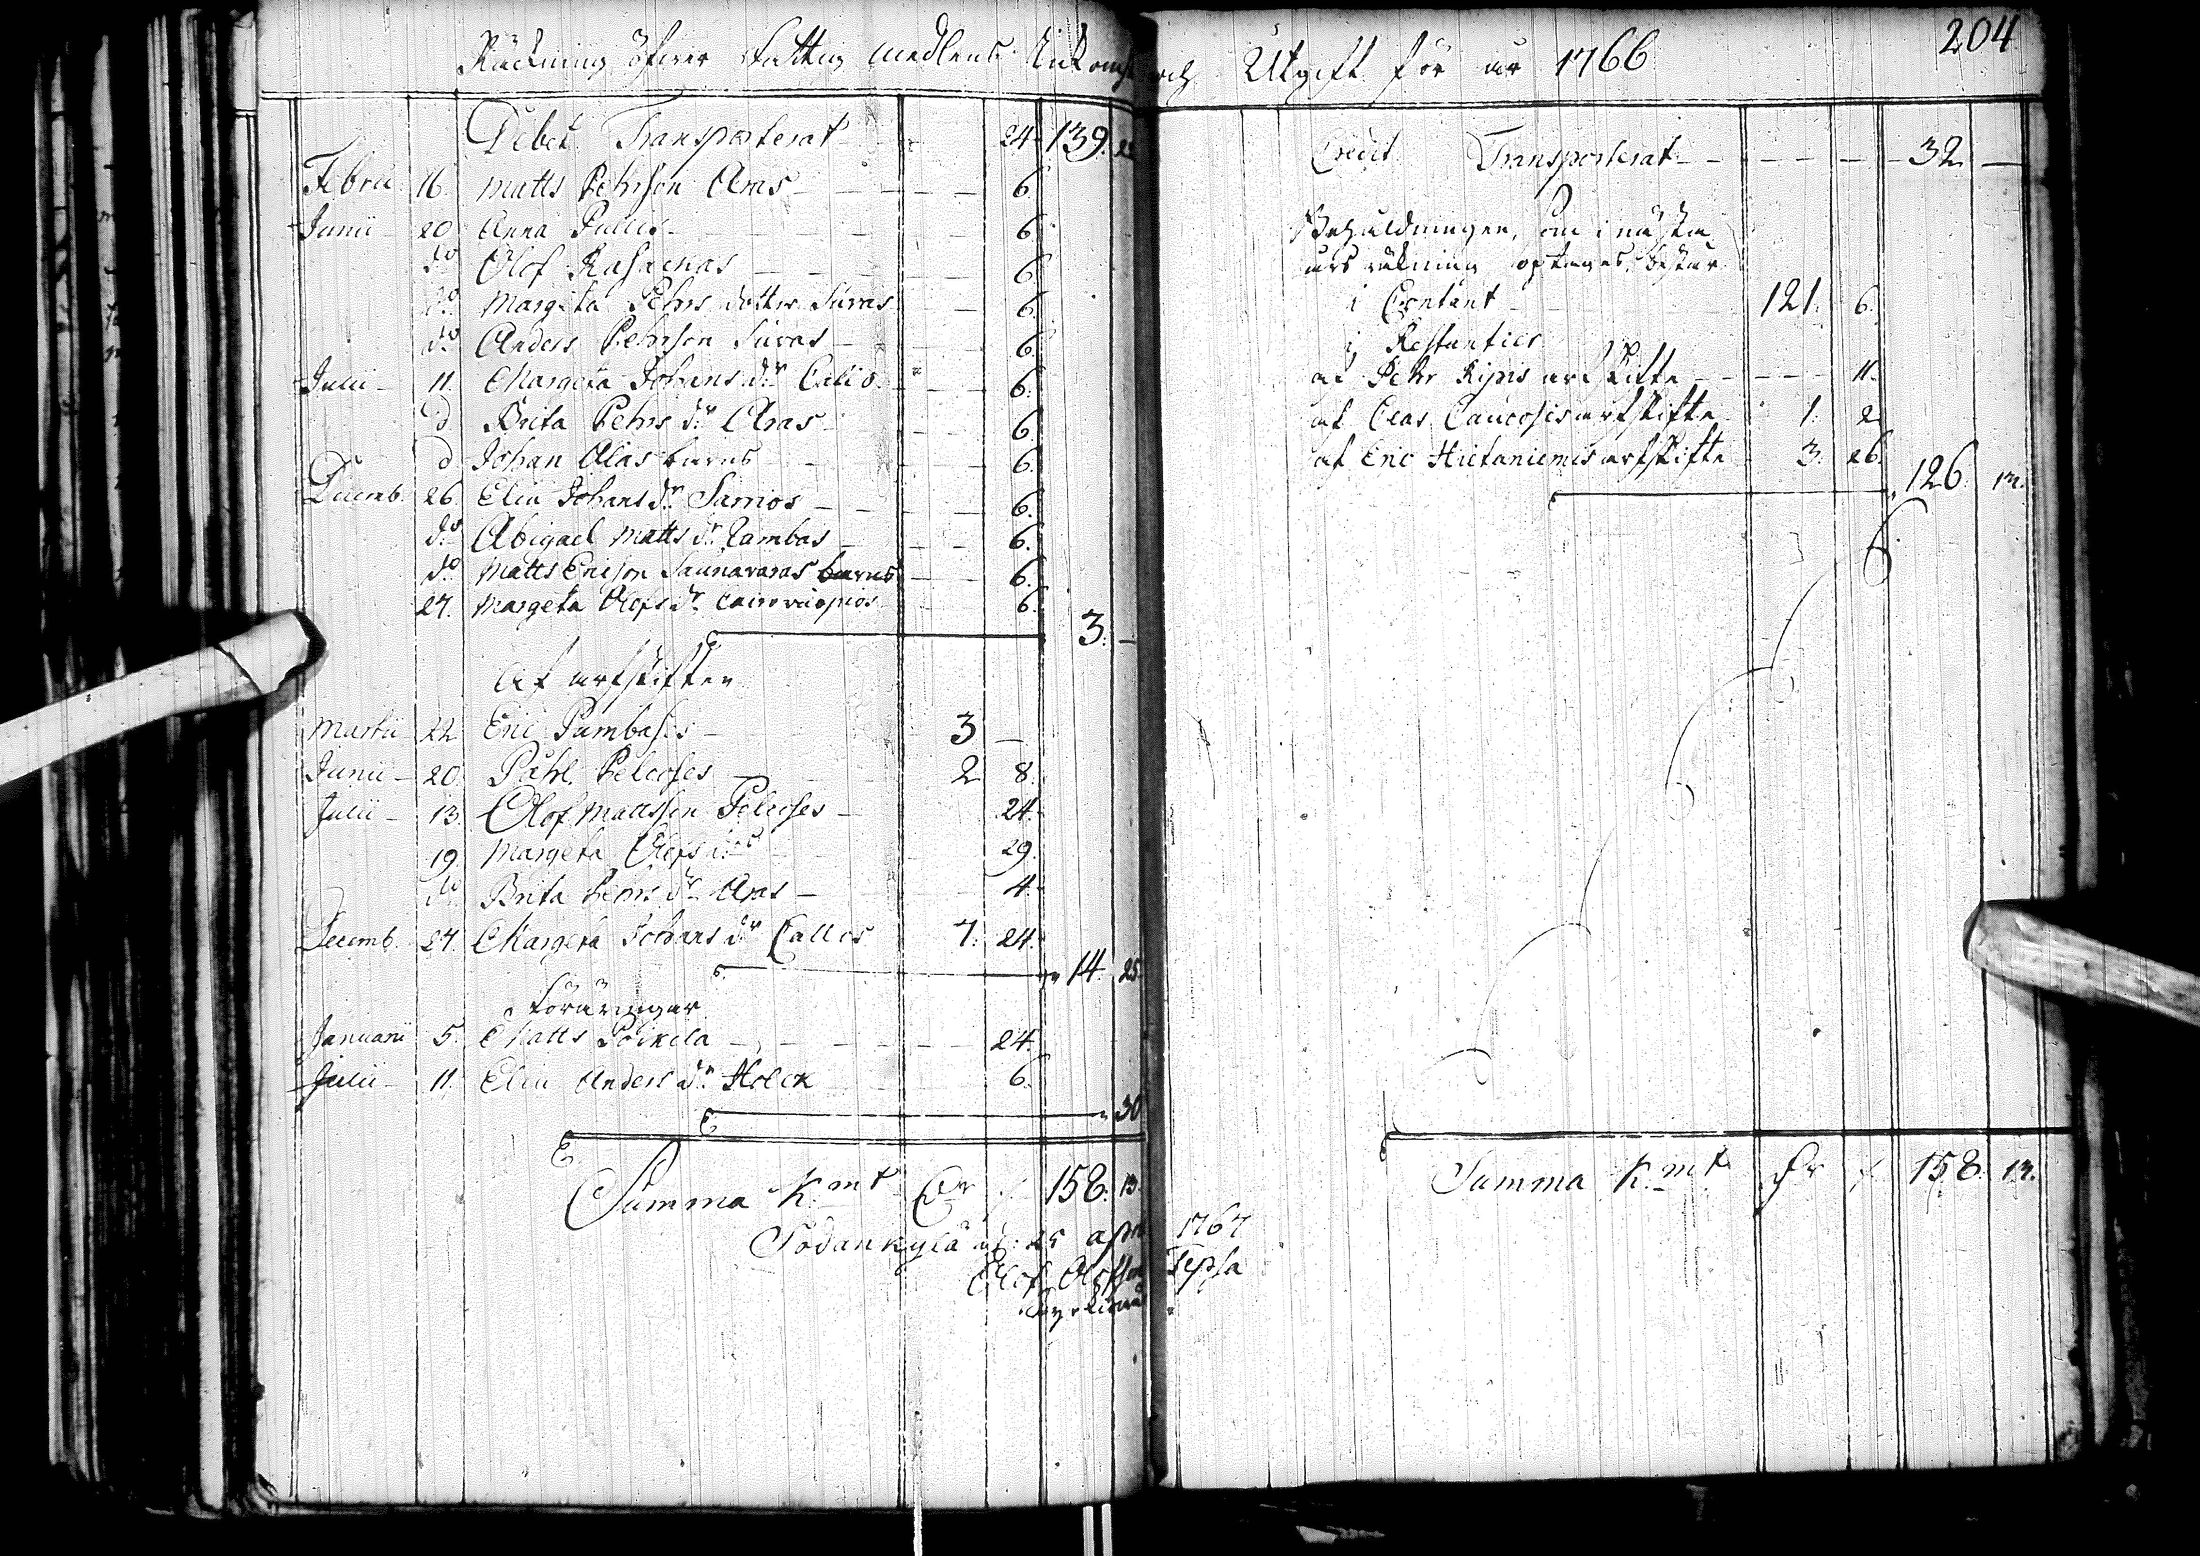 Räkning öfwer Fattig medlens Inkomst och Utgift för år 1766
204
Debet Transporterat - - 24. 139.
Febru. 16. Matts Pehrson Aras - - - - 6.
Junii - 20. Anna - - - - 6.
do Olof - - - - 6.
do Margeta Pehrs dotter - 6.
do Anders Pehrson - 6.
Julii - 11. Margeta Johans dr - 6.
d Brita Pehrs dr Aras - - 6.
d Johan Alas barns - - 6.
Decemb. 26. Elin Johans dr - - 6.
do Abigael Matts dr - - 6.
do Matts Ericson Saunavaras barns - - 6.
27. Margeta Olofs dr - 6.
3. -
Af arfskiften
Martii 22 Eric - 3 -
Junii - 20. Påhl Pelcoses - 2 8.
Julii - 13. Olof Mattsson Pelcoses - 24.
19. Margeta Olofs dr - 29.
do Brita Pehrs dr Aras - 4.
Decemb. 27. Margeta Johans dr Callos 7. 24.
14. 25
Föräringar
Januarii 5. Matts Poikela - - - - 24.
Julii - 11. Elin Anders dr Holck 6.
30
Summa K.mt 158. 13.
Sodankylä d: 25 april 1767
Olof Olofsson Tepsa
Credit Transporterat - - - - 32 -
Behåldningen, som i nästa
års räkning optages, består
i Contant - 121. 6.
i Restantier
af Pehr arfskifte - - - 11.
af Clas arfskifte 1. 2
af Eric Hietaniemis arfskifte 3. 26.
126. 13.
Summa K.mt 158. 13.